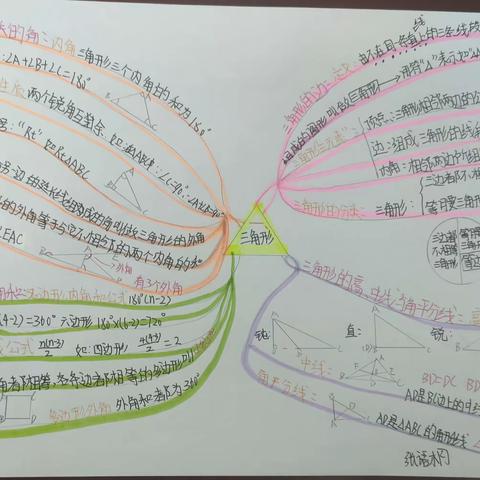 三角形
的角：内角
三角形三个内角的和为180°
∠A+∠B+∠C=180°
两个锐角互余.
"Rt"
Rt△ABC
边的延长线组成的角叫做三角形的外角
的外角等于与它不相邻的两个内角的和
EAC
外角
有3个外角
多边形内角和公式 180°(n-2)
(4-2)=360° 六边形 180°×(6-2)=720°
公式 n(n-3)/2 如:四边形 4(4-3)/2=2
角都相等,各条边都相等的多边形叫
多边形外角 外角和都为360°
三角形的边:定义:
由不在同一条直线上的三条线段
组成的图形叫做三角形
用符号"△"表示
三角形三元素:
顶点:三角形相邻两边的公
边:组成三角形的线段
内角:相邻两边所组
三角形的分类:
三角形:
三边都不相
等腰三角形
三边都
不相等
三角形
三角形的高、中线与角平分线:
钝:
直:
锐:
中线:
BD=DC
AD是BC边上的中线
角平分线:
AD是△ABC的角平分线